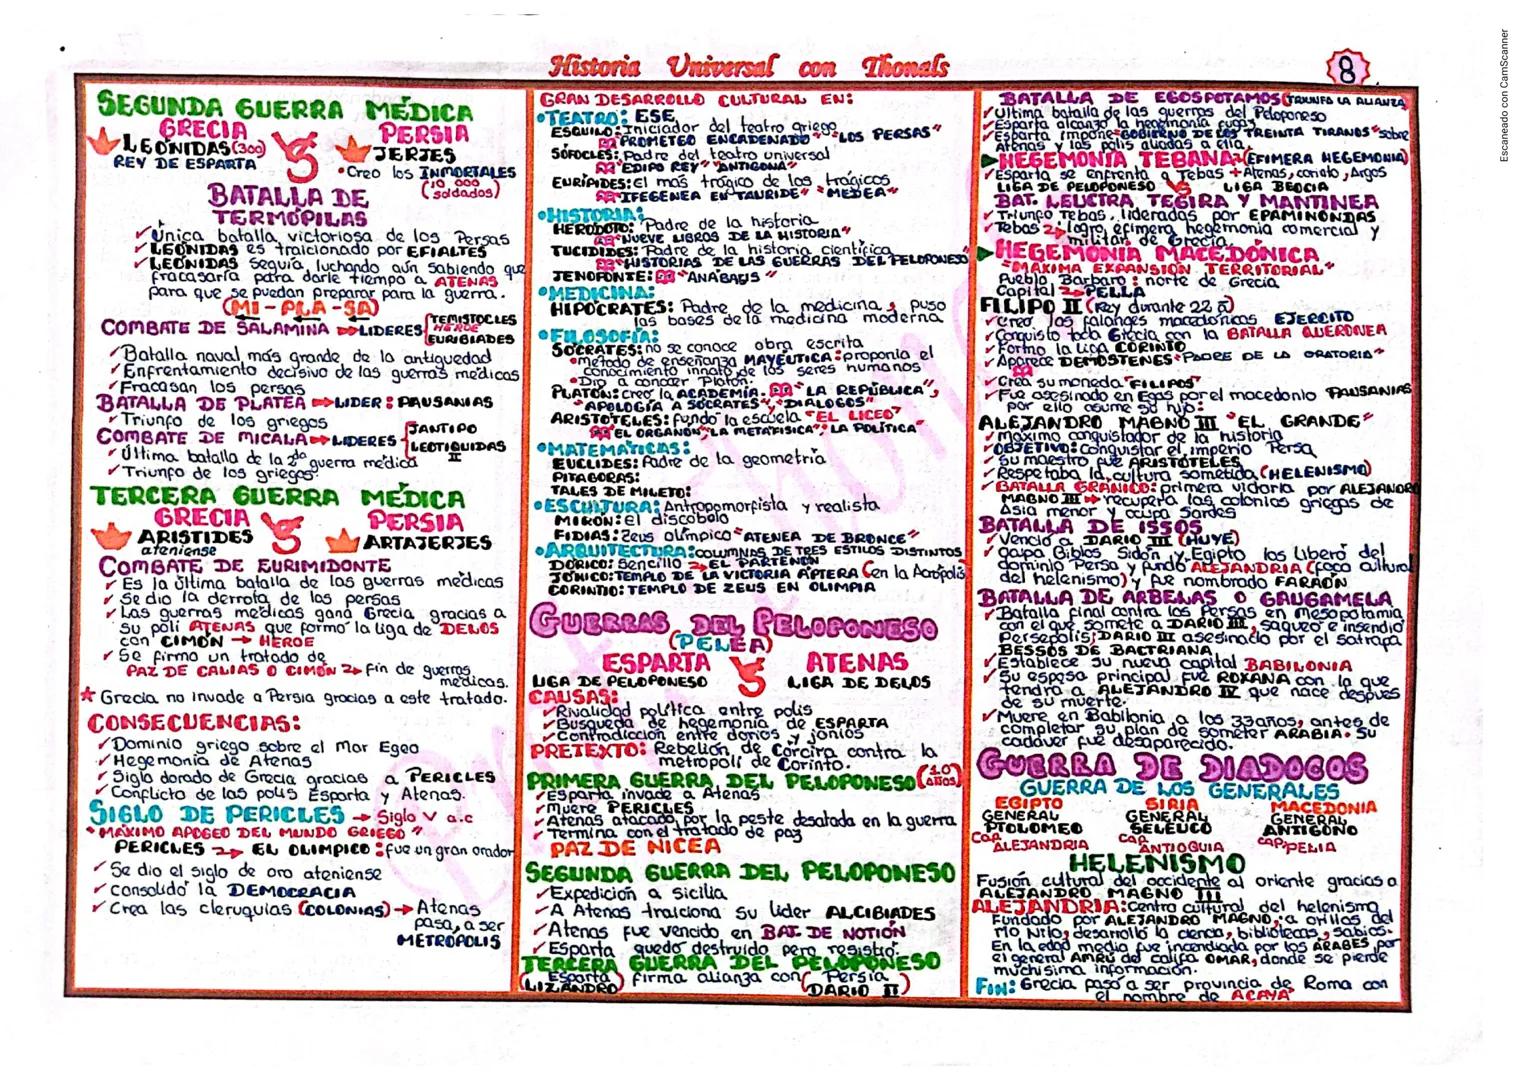 Historia Universal con Thomals
8
SEGUNDA GUERRA MÉDICA
GRECIA VS PERSIA
LEÓNIDAS (300)
REY DE ESPARTA
JERJES
•Creo los INMORTALES
(10 000 soldados)
BATALLA DE
TERMÓPILAS
✓Única batalla victoriosa de los Persas
✓LEÓNIDAS es traicionado por EFIALTES
✓LEÓNIDAS seguía luchando aún sabiendo que
fracasaría para darle tiempo a ATENAS
para que se puedan preparar para la guerra.
(MI-PLA-SA)
COMBATE DE SALAMINA ⇒ LIDERES
TEMISTOCLES
HÉROE
EURIBIADES
✓Batalla naval más grande de la antiguedad
✓Enfrentamiento decisivo de las guerras médicas
✓Fracasan los persas
BATALLA DE PLATEA ⇒ LIDER: PAUSANIAS
✓Triunfo de los griegos
COMBATE DE MICALA ⇒ LIDERES
JANTIPO
LEOTIQUIDAS II
✓Última batalla de la 2da guerra médica
✓Triunfo de los griegos.
TERCERA GUERRA MÉDICA
GRECIA VS PERSIA
ARISTIDES
ateniense
ARTAJERJES
COMBATE DE EURIMIDONTE
✓Es la última batalla de las guerras médicas
✓Se dio la derrota de los persas
✓Las guerras médicas ganó Grecia gracias a
su poli ATENAS que formó la liga de DELOS
con CIMÓN → HÉROE
✓Se firma un tratado de
PAZ DE CALIAS O CIMÓN → fin de guerras
médicas.
★ Grecia no invade a Persia gracias a este tratado.
CONSECUENCIAS:
✓Dominio griego sobre el Mar Egeo
✓Hegemonía de Atenas
✓Siglo dorado de Grecia gracias a PERICLES
✓Conflicto de las polis Esparta y Atenas.
SIGLO DE PERICLES → Siglo V a.c
"MÁXIMO APOGEO DEL MUNDO GRIEGO"
PERICLES → EL OLIMPICO: fue un gran orador
✓Se dio el siglo de oro ateniense
✓consolidó la DEMOCRACIA
✓Crea las cleruquias (COLONIAS) → Atenas
pasa, a ser
METROPOLIS
GRAN DESARROLLO CULTURAL EN:
•TEATRO: ESE
ESQUILO: Iniciador del teatro griego
"PROMETEO ENCADENADO" "LOS PERSAS"
SÓFOCLES: Padre del teatro universal
"EDIPO REY" "ANTIGONA"
EURÍPIDES: el más trágico de los trágicos
"IFEGENEA EN TAURIDE" "MEDEA"
•HISTORIA:
HERODOTO: Padre de la historia
"NUEVE LIBROS DE LA HISTORIA"
TUCIDIDES: Padre de la historia científica
"HISTORIAS DE LAS GUERRAS DEL PELOPONESO"
JENOFONTE: "ANÁBASIS"
•MEDICINA:
HIPÓCRATES: Padre de la medicina, puso
las bases de la medicina moderna
•FILOSOFÍA:
SÓCRATES: no se conoce obra escrita
•metodo de enseñanza MAYÉUTICA: proponía el
conocimiento innato de los seres humanos
•Dio a conocer Platón.
PLATÓN: creó la ACADEMIA. "LA REPÚBLICA"
"APOLOGÍA A SÓCRATES", "DIALOGOS"
ARISTÓTELES: fundó la escuela "EL LICEO"
"EL ORGANON", "LA METAFISICA", "LA POLÍTICA"
•MATEMÁTICAS:
EUCLIDES: Padre de la geometria
PITAGORAS:
TALES DE MILETO:
•ESCULTURA: Antropomorfista y realista
MIRÓN: el discóbolo
FIDIAS: Zeus olímpico "ATENEA DE BRONCE"
•ARQUITECTURA: COLUMNAS DE TRES ESTILOS DISTINTOS
DÓRICO: Sencillo → EL PARTENÓN
JÓNICO: TEMPLO DE LA VICTORIA ÁPTERA (en la Acrópolis
CORINTIO: TEMPLO DE ZEUS EN OLIMPIA
GUERRAS DEL PELOPONESO
(PELEA)
ESPARTA VS ATENAS
LIGA DE PELOPONESO LIGA DE DELOS
CAUSAS:
✓Rivalidad política entre polis
✓Busqueda de hegemonía de ESPARTA
✓Contradicción entre dorios y jonios
PRETEXTO: Rebelión de Corcira contra la
metropoli de Corinto.
PRIMERA GUERRA DEL PELOPONESO (10 AÑOS)
✓Esparta invade a Atenas
✓Muere PERICLES
✓Atenas atacado por la peste desatada en la guerra
✓Termina con el tratado de paz
PAZ DE NICEA
SEGUNDA GUERRA DEL PELOPONESO
✓Expedición a sicilia
✓A Atenas traiciona su lider ALCIBIADES
✓Atenas fue vencido en BAT. DE NOTIÓN
✓Esparta quedó destruido pero resistió.
TERCERA GUERRA DEL PELOPONESO
Esparta (LIZANDRO) firma alianza con Persia (DARIO II)
BATALLA DE EGOSPOTAMOS (TRIUNFA LA ALIANZA)
✓Ultima batalla de las guerras del Peloponeso
✓Esparta alcanzó la hegemonía fugaz
✓Esparta impone "GOBIERNO DE LOS TREINTA TIRANOS" sobre
Atenas y las polis aliadas a ella.
▶HEGEMONÍA TEBANA: (EFIMERA HEGEMONIA)
✓Esparta se enfrenta a Tebas + Atenas, corinto, Argos
LIGA DE PELOPONESO VS LIGA BEOCIA
BAT. LEUCTRA, TEGIRA Y MANTINEA
✓Triunfo Tebas, lideradas por EPAMINONDAS
✓Tebas → logró efimera hegemonía comercial y
militar de Grecia.
▶HEGEMONÍA MACEDÓNICA
"MÁXIMA EXPANSIÓN TERRITORIAL"
Pueblo Bárbaro: norte de Grecia
Capital → PELLA
FILIPO II (Rey durante 22 a)
✓creó los falanges macedónicas EJERCITO
✓Conquistó toda Grecia con la BATALLA QUERONEA
✓Formó la Liga CORINTO
✓Aparece DEMÓSTENES "PADRE DE LA ORATORIA"
✓Crea su moneda "FILIPOS"
✓Fue asesinado en Egas por el macedonio PAUSANIAS
por ello asume su hijo:
ALEJANDRO MAGNO III "EL GRANDE"
✓Máximo conquistador de la historia
✓OBJETIVO: Conquistar el imperio Persa
✓Su maestro fue ARISTÓTELES
✓Respetaba la cultura sometida (HELENISMO)
✓BATALLA GRÁNICO: primera victoria por ALEJANDRO
MAGNO III ⇒ recupera las colonias griegas de
Asia menor y ocupa Sardes
BATALLA DE ISSOS
✓Venció a DARIO III (HUYE)
✓ocupa Biblos, Sidón y Egipto los liberó del
dominio Persa y fundó ALEJANDRIA (foco cultural
del helenismo) y fue nombrado FARAÓN
BATALLA DE ARBELAS O GAUGAMELA
✓Batalla final contra los Persas en Mesopotamia
con el que somete a DARIO III, saqueó e incendió
Persepolis; DARIO III asesinado por el satrapa
BESSOS DE BACTRIANA.
✓Establece su nueva capital BABILONIA
✓Su esposa principal fue ROXANA con la que
tendrá a ALEJANDRO IV que nace después
de su muerte.
✓Muere en Babilonia a los 33 años, antes de
completar su plan de someter ARABIA. Su
cadáver fue desaparecido.
GUERRA DE DIADOCOS
GUERRA DE LOS GENERALES
EGIPTO SIRIA MACEDONIA
GENERAL GENERAL GENERAL
PTOLOMEO SELEUCO ANTIGONO
CAP. ALEJANDRIA CAP. ANTIOQUIA CAP. PELIA
HELENISMO
Fusión cultural del occidente al oriente gracias a
ALEJANDRO MAGNO III
ALEJANDRIA: Centro cultural del helenismo
Fundado por ALEJANDRO MAGNO, a orillas del
río Nilo, desarrolló la ciencia, bibliotecas, sabios.
En la edad media fue incendiada por los ÁRABES, por
el general AMRÚ del califa OMAR, donde se pierde
muchísima información.
FIN: Grecia pasó a ser provincia de Roma con
el nombre de ACAYA
Escaneado con CamScanner